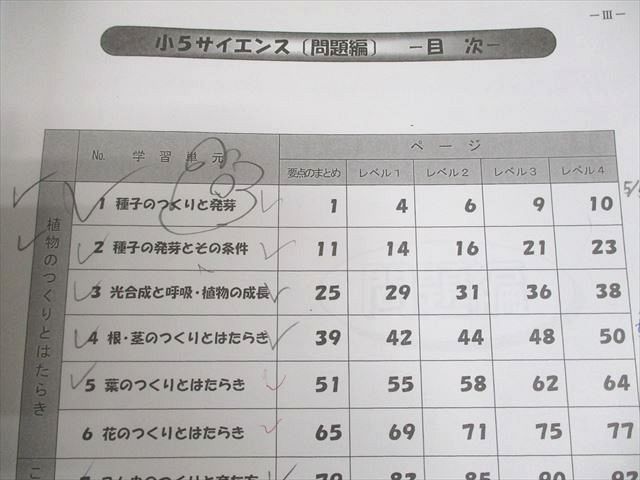 －Ⅲ－
小5サイエンス〔問題編〕 －目 次－
No. 学習単元 ページ
要点のまとめ レベル1 レベル2 レベル3 レベル4
植物のつくりとはたらき
1 種子のつくりと発芽 1 4 6 9 10
2 種子の発芽とその条件 11 14 16 21 23
3 光合成と呼吸・植物の成長 25 29 31 36 38
4 根・茎のつくりとはたらき 39 42 44 48 50
5 葉のつくりとはたらき 51 55 58 62 64
6 花のつくりとはたらき 65 69 71 75 77